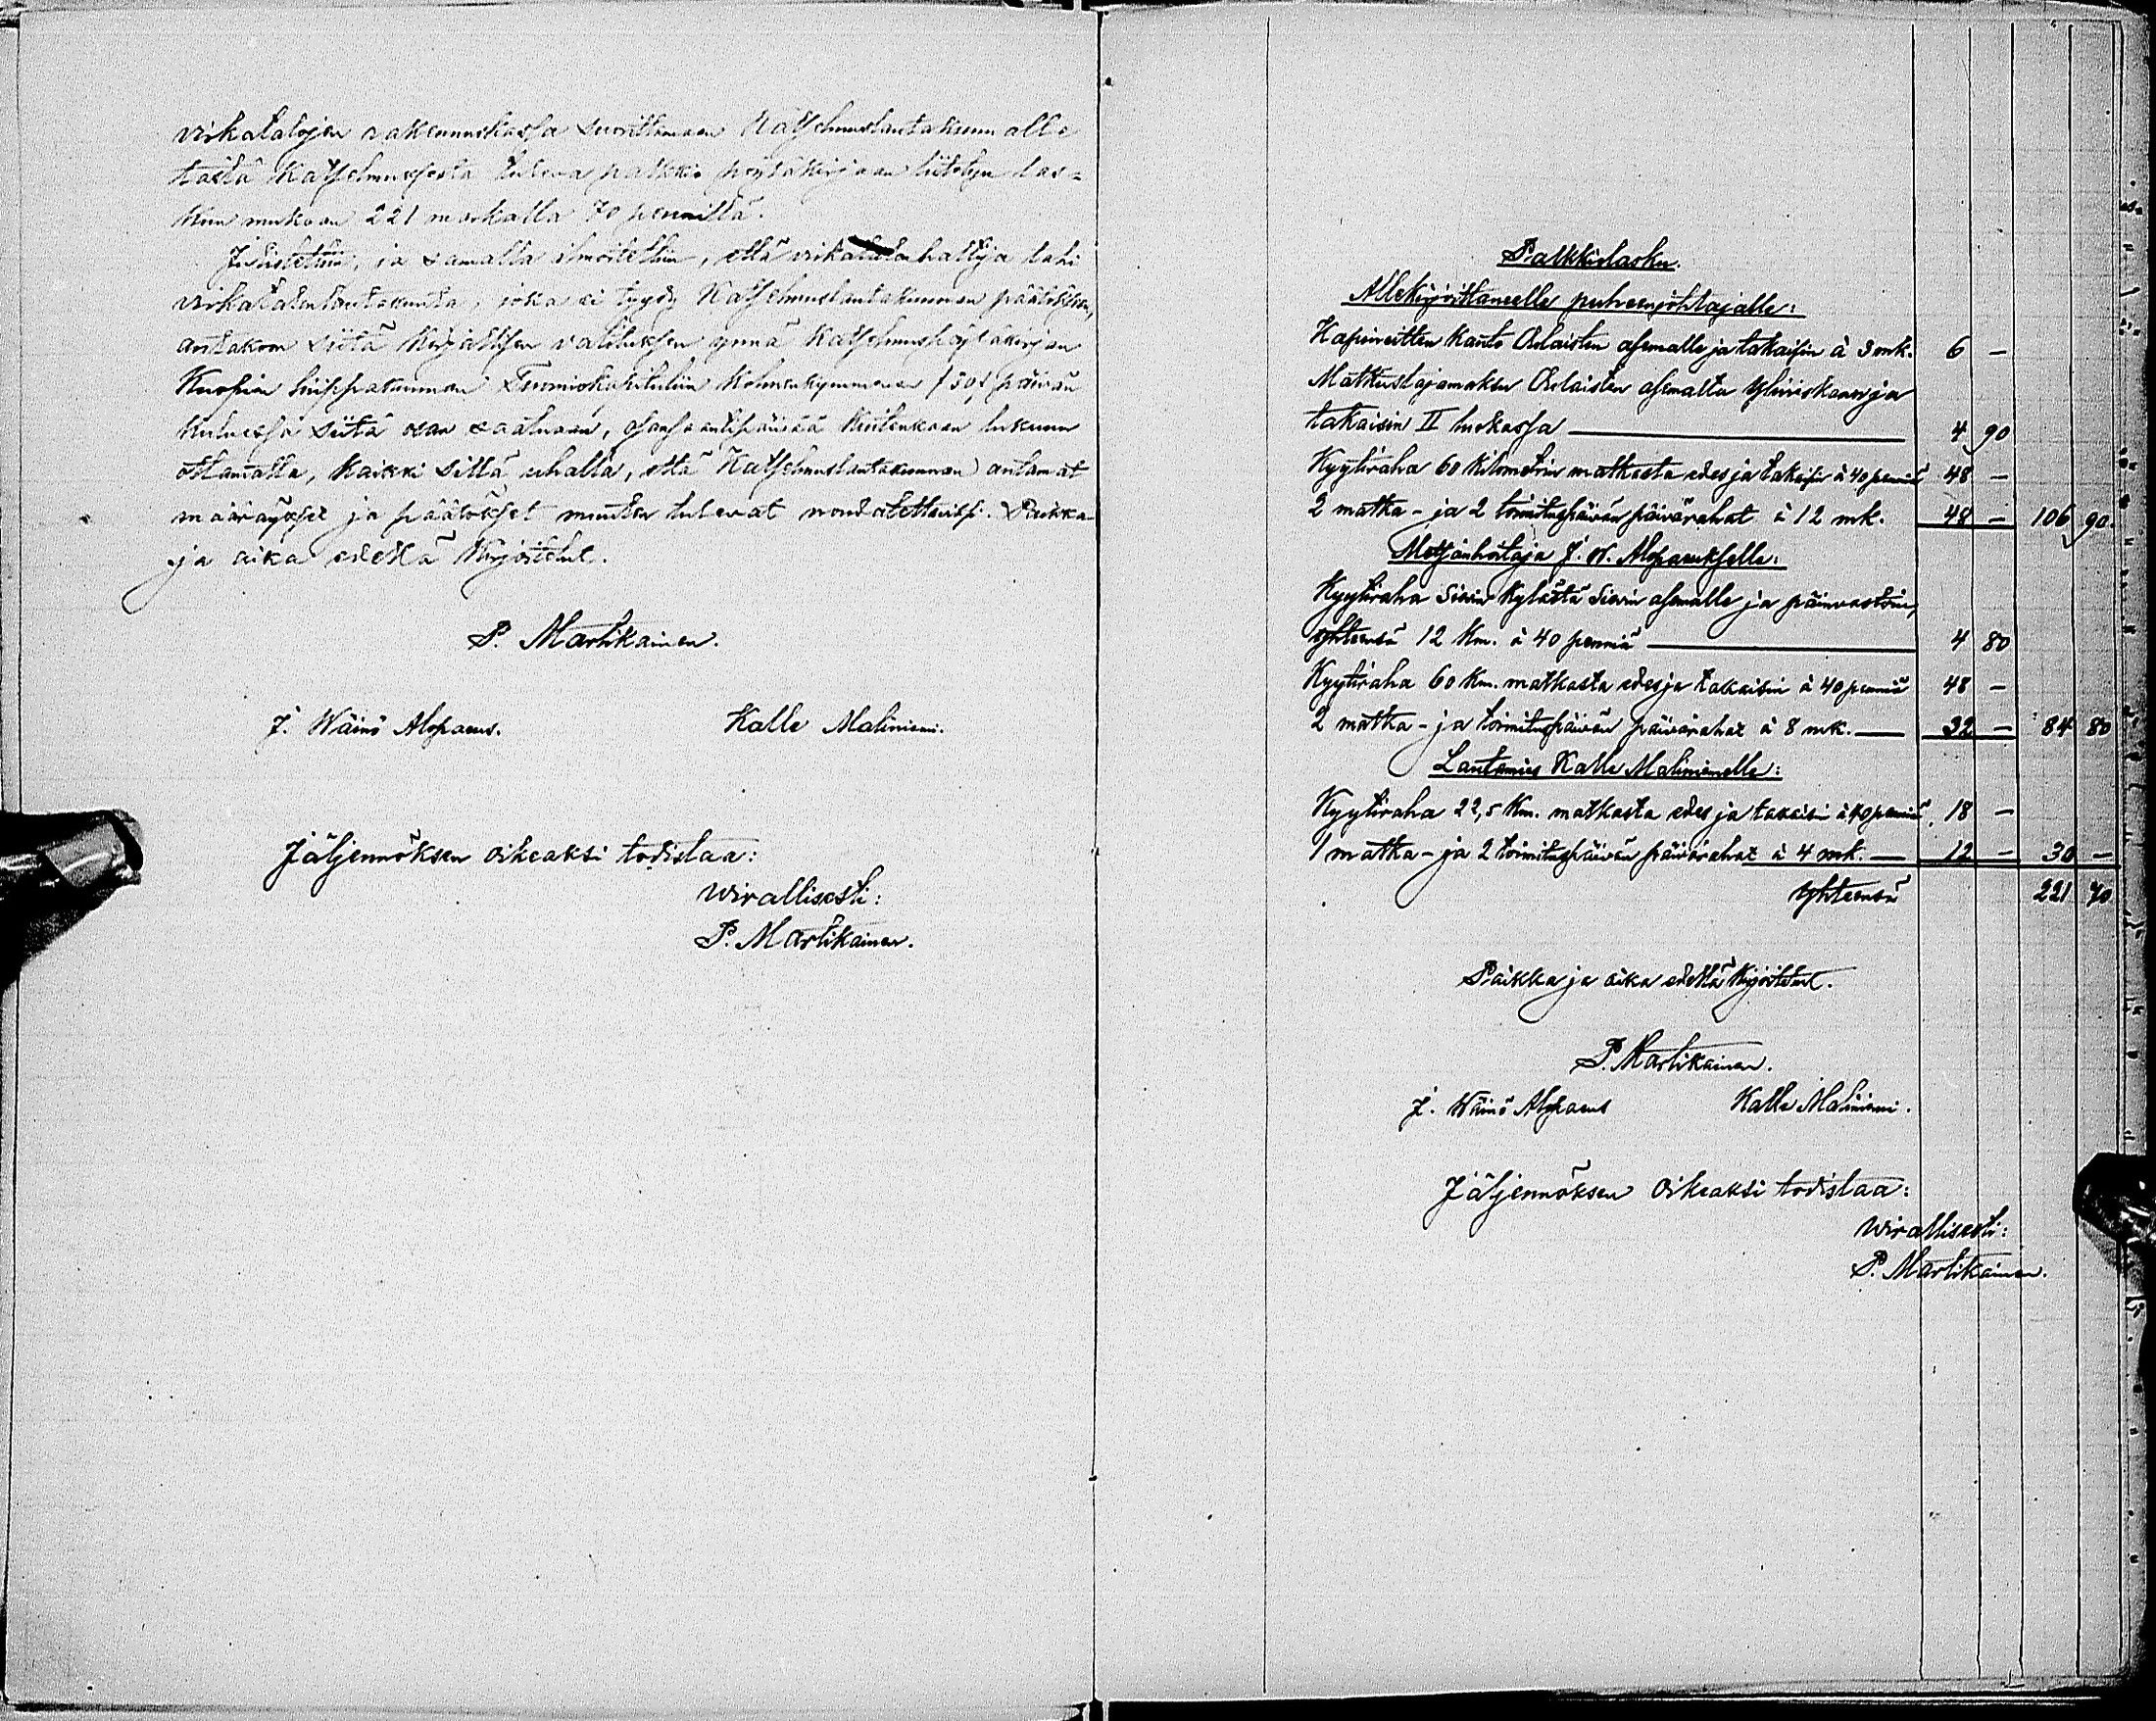 virkatalojen rakennuskassa suorittamaan Katselmuslautakunnalle
tästä Katselmuksesta tuleva palkkio pöytäkirjaan liitetyn las=
kun mukaan 221 markalla 70 pennillä.
Julistettiin, ja samalla ilmoitettiin, että virkatalonhaltija tahi
virkatalonlautakunta, joka ei tyydy Katselmuslautakunnan päätökseen,
antakoon siitä kirjallisen valituksen ynnä Katselmuspöytäkirjan
Kuopion hiippakunnan Tuomiokapituliin kolmenkymmenen /30/ päivän
kuluessa siitä osan saatuaan, osansaantipäivää kuitenkaan lukuun
ottamatta, kaikki sillä uhalla, että Katselmuslautakunnan antamat
määräykset ja päätökset muuten tulevat noudatettaviksi. Paikka
ja aika edellä kirjoitetut.
P. Martikainen.
J. Wäinö Alopaeus. Kalle Maliniemi.
Jäljennöksen oikeaksi todistaa:
Wirallisesti:
P. Martikainen.
Palkkiolasku.
Allekirjoittaneelle puheenjohtajalle:
Kapineitten kanto Oulaisten asemalle ja takaisin à 3 mk. 6 —
Matkustajamaksu Oulaisten asemalta Ylivieskaan ja
takaisin II luokassa 4 90
Kyytiraha 60 kilometrin matkasta edes ja takaisin à 40 penniä 48 —
2 matka- ja 2 toimituspäivän päivärahat à 12 mk. 48 — 106 90
Metsänhoitaja J. W. Alopaeukselle:
Kyytiraha Sievin kylästä Sievin asemalle ja päinvastoin,
yhteensä 12 Km. à 40 penniä 4 80
Kyytiraha 60 Km. matkasta edes ja takaisin à 40 penniä 48 —
2 matka- ja toimituspäivän päivärahat à 8 mk. 32 — 84 80
Lautamies Kalle Maliniemelle:
Kyytiraha 22,5 Km. matkasta edes ja takaisin à 40 penniä 18 —
1 matka- ja 2 toimituspäivän päivärahat à 4 mk. 12 — 30 —
Yhteensä 221 70
Paikka ja aika edellä kirjoitetut.
P. Martikainen.
J. Wäinö Alopaeus Kalle Maliniemi.
Jäljennöksen oikeaksi todistaa:
Wirallisesti:
P. Martikainen.